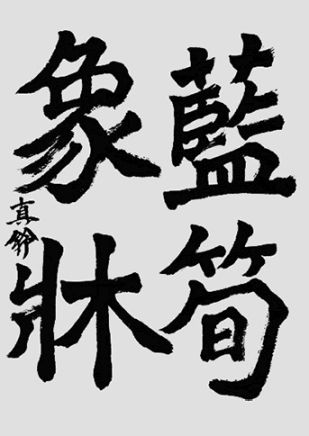 藍筍
象牀
真鈴